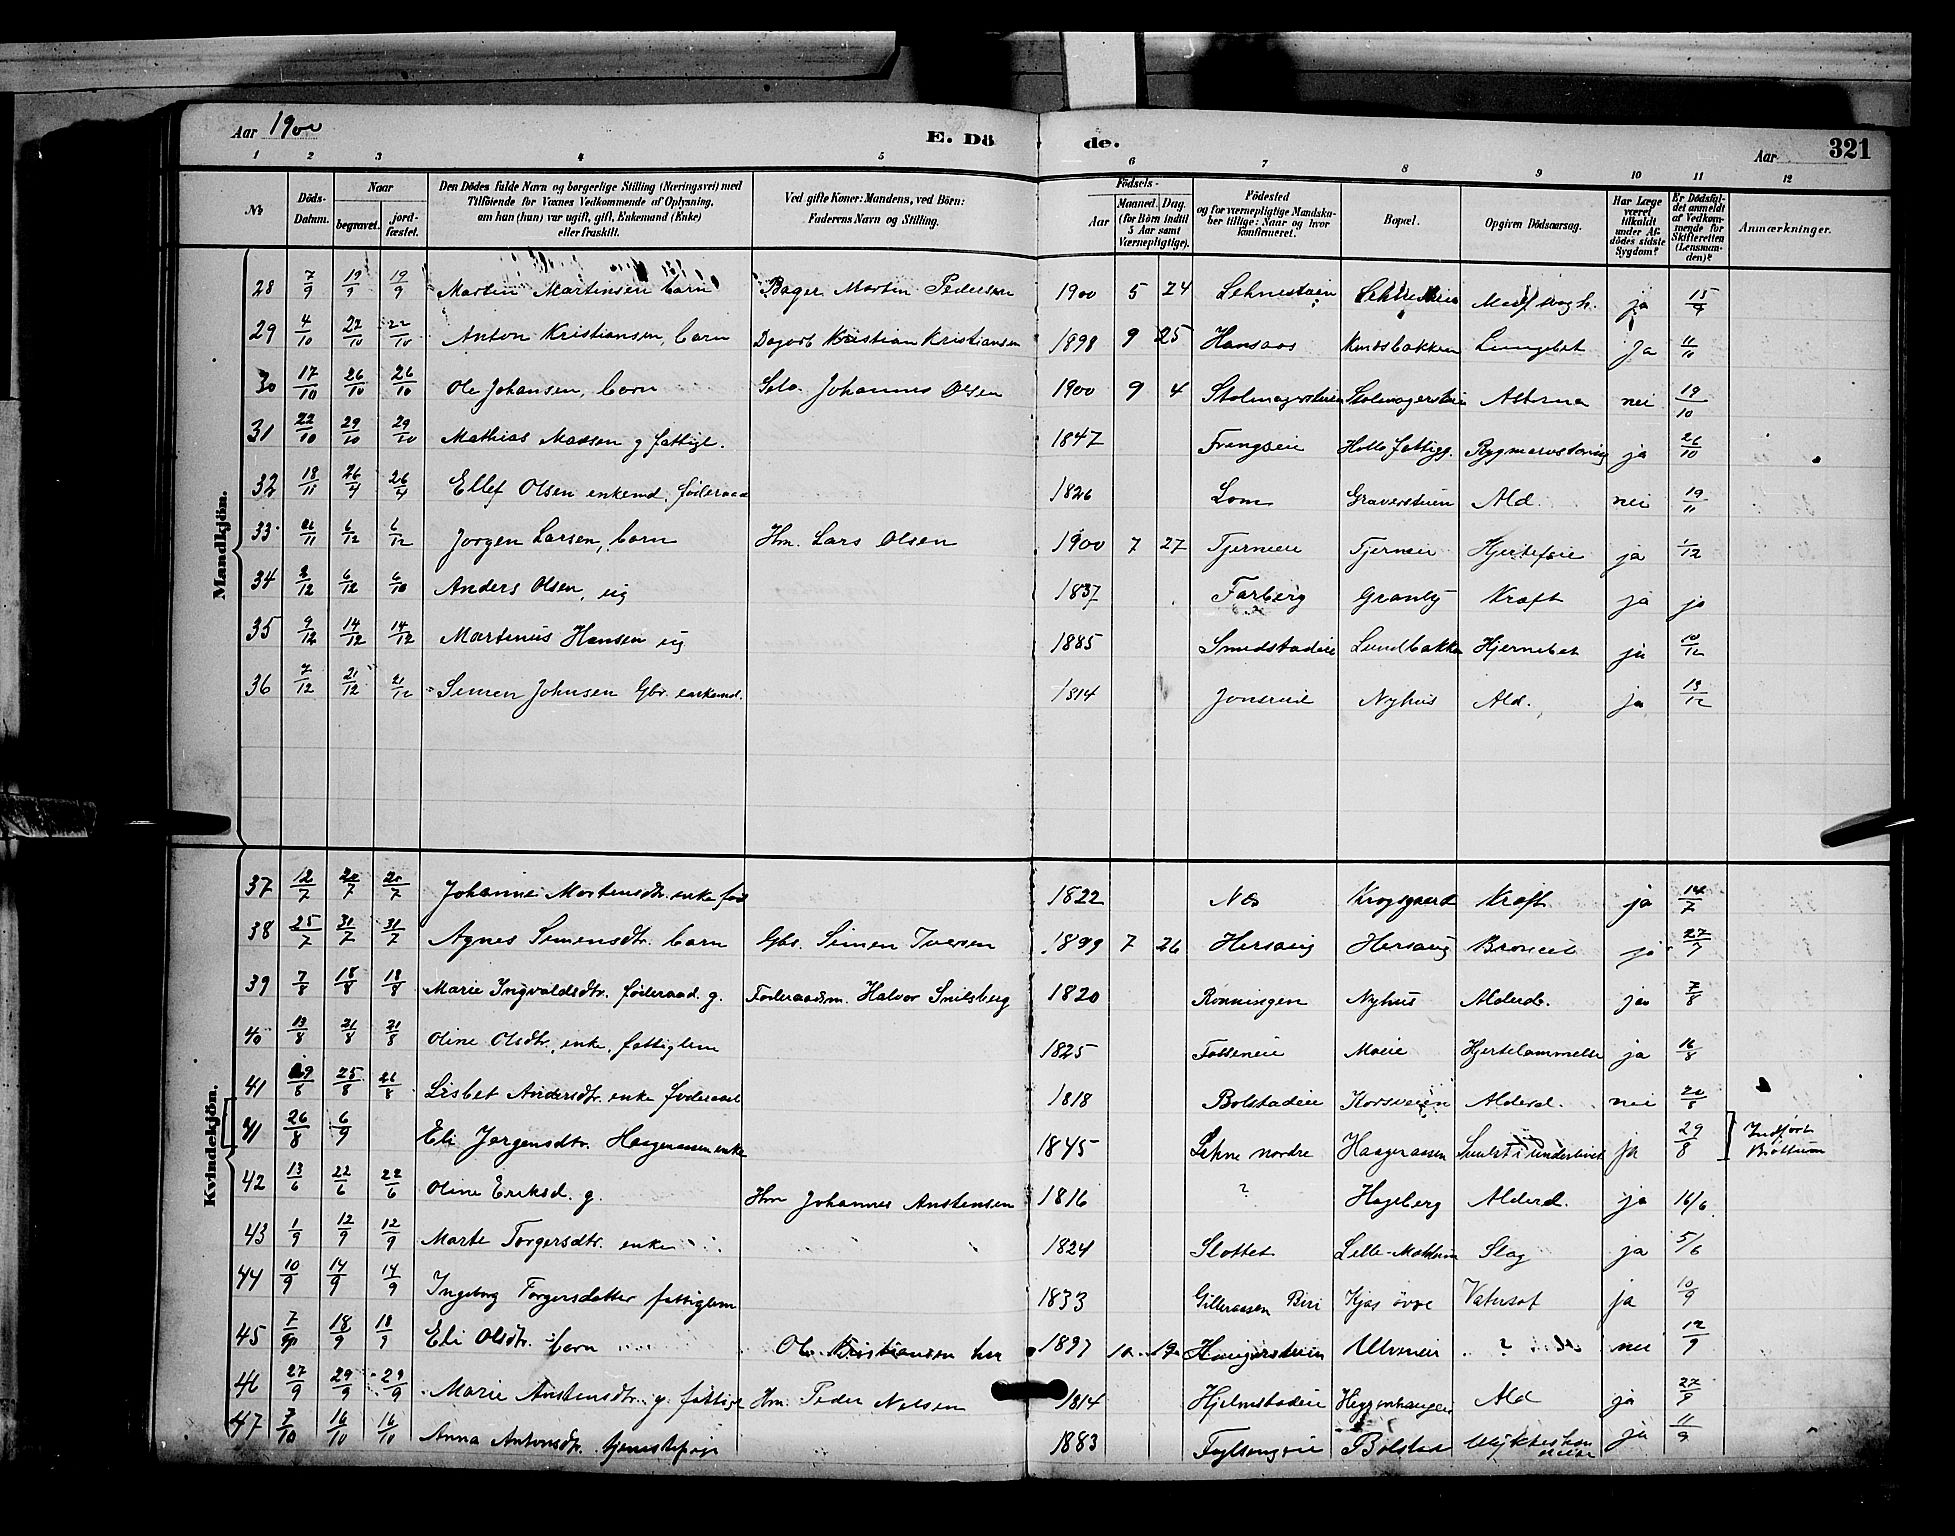 Aar 1900
E. Dö
de.
Aar
321
1 2 3 4 5 6 7 8 9 10 11 12
No
Döds-Datum.
Naar
begravet.
jord-fæstet.
Den Dödes fulde Navn og borgerlige Stilling (Næringsvei) med
Tilföiende for Voxnes Vedkommende af Oplysning,
om han (hun) var ugift, gift, Enkemand (Enke)
eller fraskilt.
Ved gifte Koner: Mandens, ved Börn:
Faderens Navn og Stilling.
Födsels-
Aar
Maaned. Dag.
(for Börn indtil
5 Aar samt
Værnepligtige).
Födested
og for værnepligtige Mandska-
ber tillige: Naar og hvor
konfirmeret.
Bopæl.
Opgiven Dödsaarsag.
Har Læge
været
tilkaldt
under Af-
dödes sidste
Sygdom?
Er Dödsfal-
det anmeldt
af Vedkom-
mende for
Skifteretten
(Lensman-
den)?
Anmærkninger.
Mandkjön.
28 7/9 19/9 19/9 Martin Martinsen barn Bager Martin Pedersen 1900 5 24 ja
29 4/10 22/10 22/10 Anton Kristiansen, barn Dagarb Kristian Kristiansen 1898 9 25 Hansaas Lungebet Ja 11/10
30 17/10 26/10 26/10 Ole Johansen, barn Johannes Olsen 1900 9 4 nei 19/10
31 22/10 29/10 29/10 Mathias g fattigl. 1847 ja 26/10
32 18/11 26/4 26/4 Ellef Olsen enkemd. föderaad 1826 Lom Ald. nei 19/11
33 6/12 6/12 Jorgen Larsen, barn Hm. Lars Olsen 1900 7 27 Tjerneie Tjerneie ja 1/12
34 6/12 6/10 Anders Olsen, ug 1837 Farberg Granby Kræft ja ja
35 9/12 14/12 14/12 Martinus Hansen ug 1885 Smedstadeie Lundbakken Hjernebet ja 10/12
36 7/12 21/12 21/12 Simen Johnsen Gbr. enkemd. 1814 Jonsrud Nyhus Ald. ja 13/12
Kvindekjön.
37 12/7 20/7 20/7 Johanne Mortensdtr. enke föd 1822 Næs Krogsgaard Kræft ja 14/7
38 25/7 31/7 31/7 Agnes Simensdtr. barn Gbr. Simen Iversen 1899 7 26 Hersaug Hersaug ja 27/7
39 7/8 18/8 18/8 Marie Ingvaldsdtr. föderaad. g. Föderaadsm. Halvor Smilsberg 1820 Rönningen Nyhus Alderd. ja 7/8
40 13/8 21/8 21/8 Oline Olsdtr., enke, fattiglem 1825 Moeie Hjertelammelse ja 16/8
41 19/8 25/8 Lisbet Andersdtr. enke föderaad 1818 Bolstadeie Korsveien Alderd. nei 20/8
41 26/8 6/9 Eli Jorgensdtr. Haageraasen enke 1845 Lehne nordre Haageraasen Svulst i underlivet ja 29/8 Indført Brøttum
42 13/6 22/6 22/6 Oline Eriksd. g. Hm Johannes Anstensen 1816 ? Hageberg Alderd. ja 16/6
43 1/9 12/9 12/9 Marte Torgersdtr. enke 1824 Slottet Slag ja 5/6
44 10/9 14/9 14/9 Ingeborg Torgersdatter fattiglem 1833 Gilleraasen Biri Kjos övre Vatersot ja 10/9
45 7/9 18/9 18/9 Eli Olsdtr. barn Ole Kristiansen 1897 10 19 ? nei 12/9
46 27/9 29/9 29/9 Marie Anstensdtr. g. fattigl Hm. Peder Nilsen 1814 Hjelmstadeie Ald ja 27/9
47 7/10 16/10 16/10 Anna Antonsdtr. tjenestepige 1883 Bolstad ja 11/9